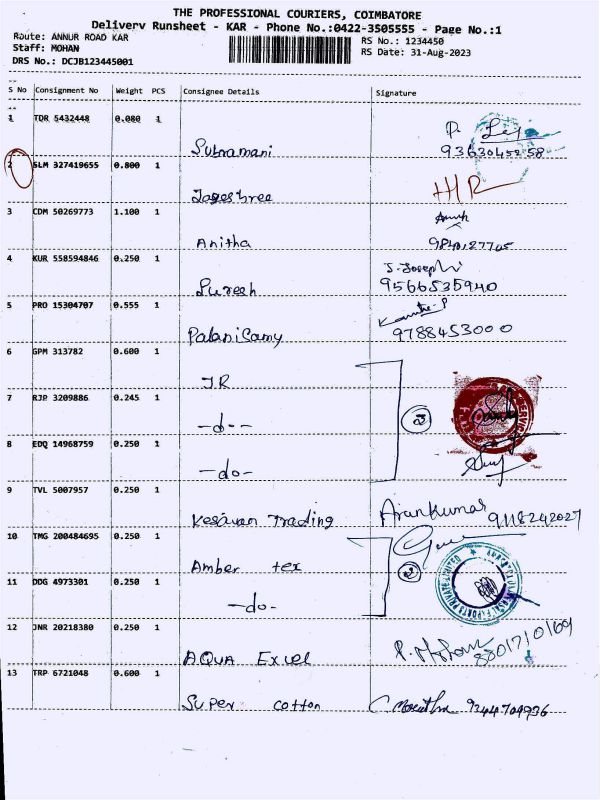 THE PROFESSIONAL COURIERS, COIMBATORE
Delivery Runsheet - KAR - Phone No.:0422-3505555 - Page No.:1
Route: ANNUR ROAD KAR
Staff: MOHAN
DRS No.: DCJB123445001
RS No.: 1234450
RS Date: 31-Aug-2023
S No Consignment No Weight PCS Consignee Details Signature
1 TDR 5432448 0.080 1
Subramani 9363045258
2 SLM 327419655 0.800 1
Jageshree H/R
3 CDM 50269773 1.100 1
Anitha 9840127705
4 KUR 558594846 0.250 1 S. Joseph
Suresh 9566535940
5 PRO 15304707 0.555 1
Palanisamy 9788453000
6 GPM 313782 0.600 1
JR
7 RJP 3209886 0.245 1
-do-
8 EDQ 14968759 0.250 1
-do-
9 TVL 5007957 0.250 1
Kesavan Trading Arunkumar 9118242027
10 TMG 200484695 0.250 1
Amber tex
11 DDG 4973301 0.250 1
-do-
12 JNR 20218380 0.250 1
AQUA Excel P. Mohan 8801710169
13 TRP 6721048 0.600 1
Super cotton 9344704936